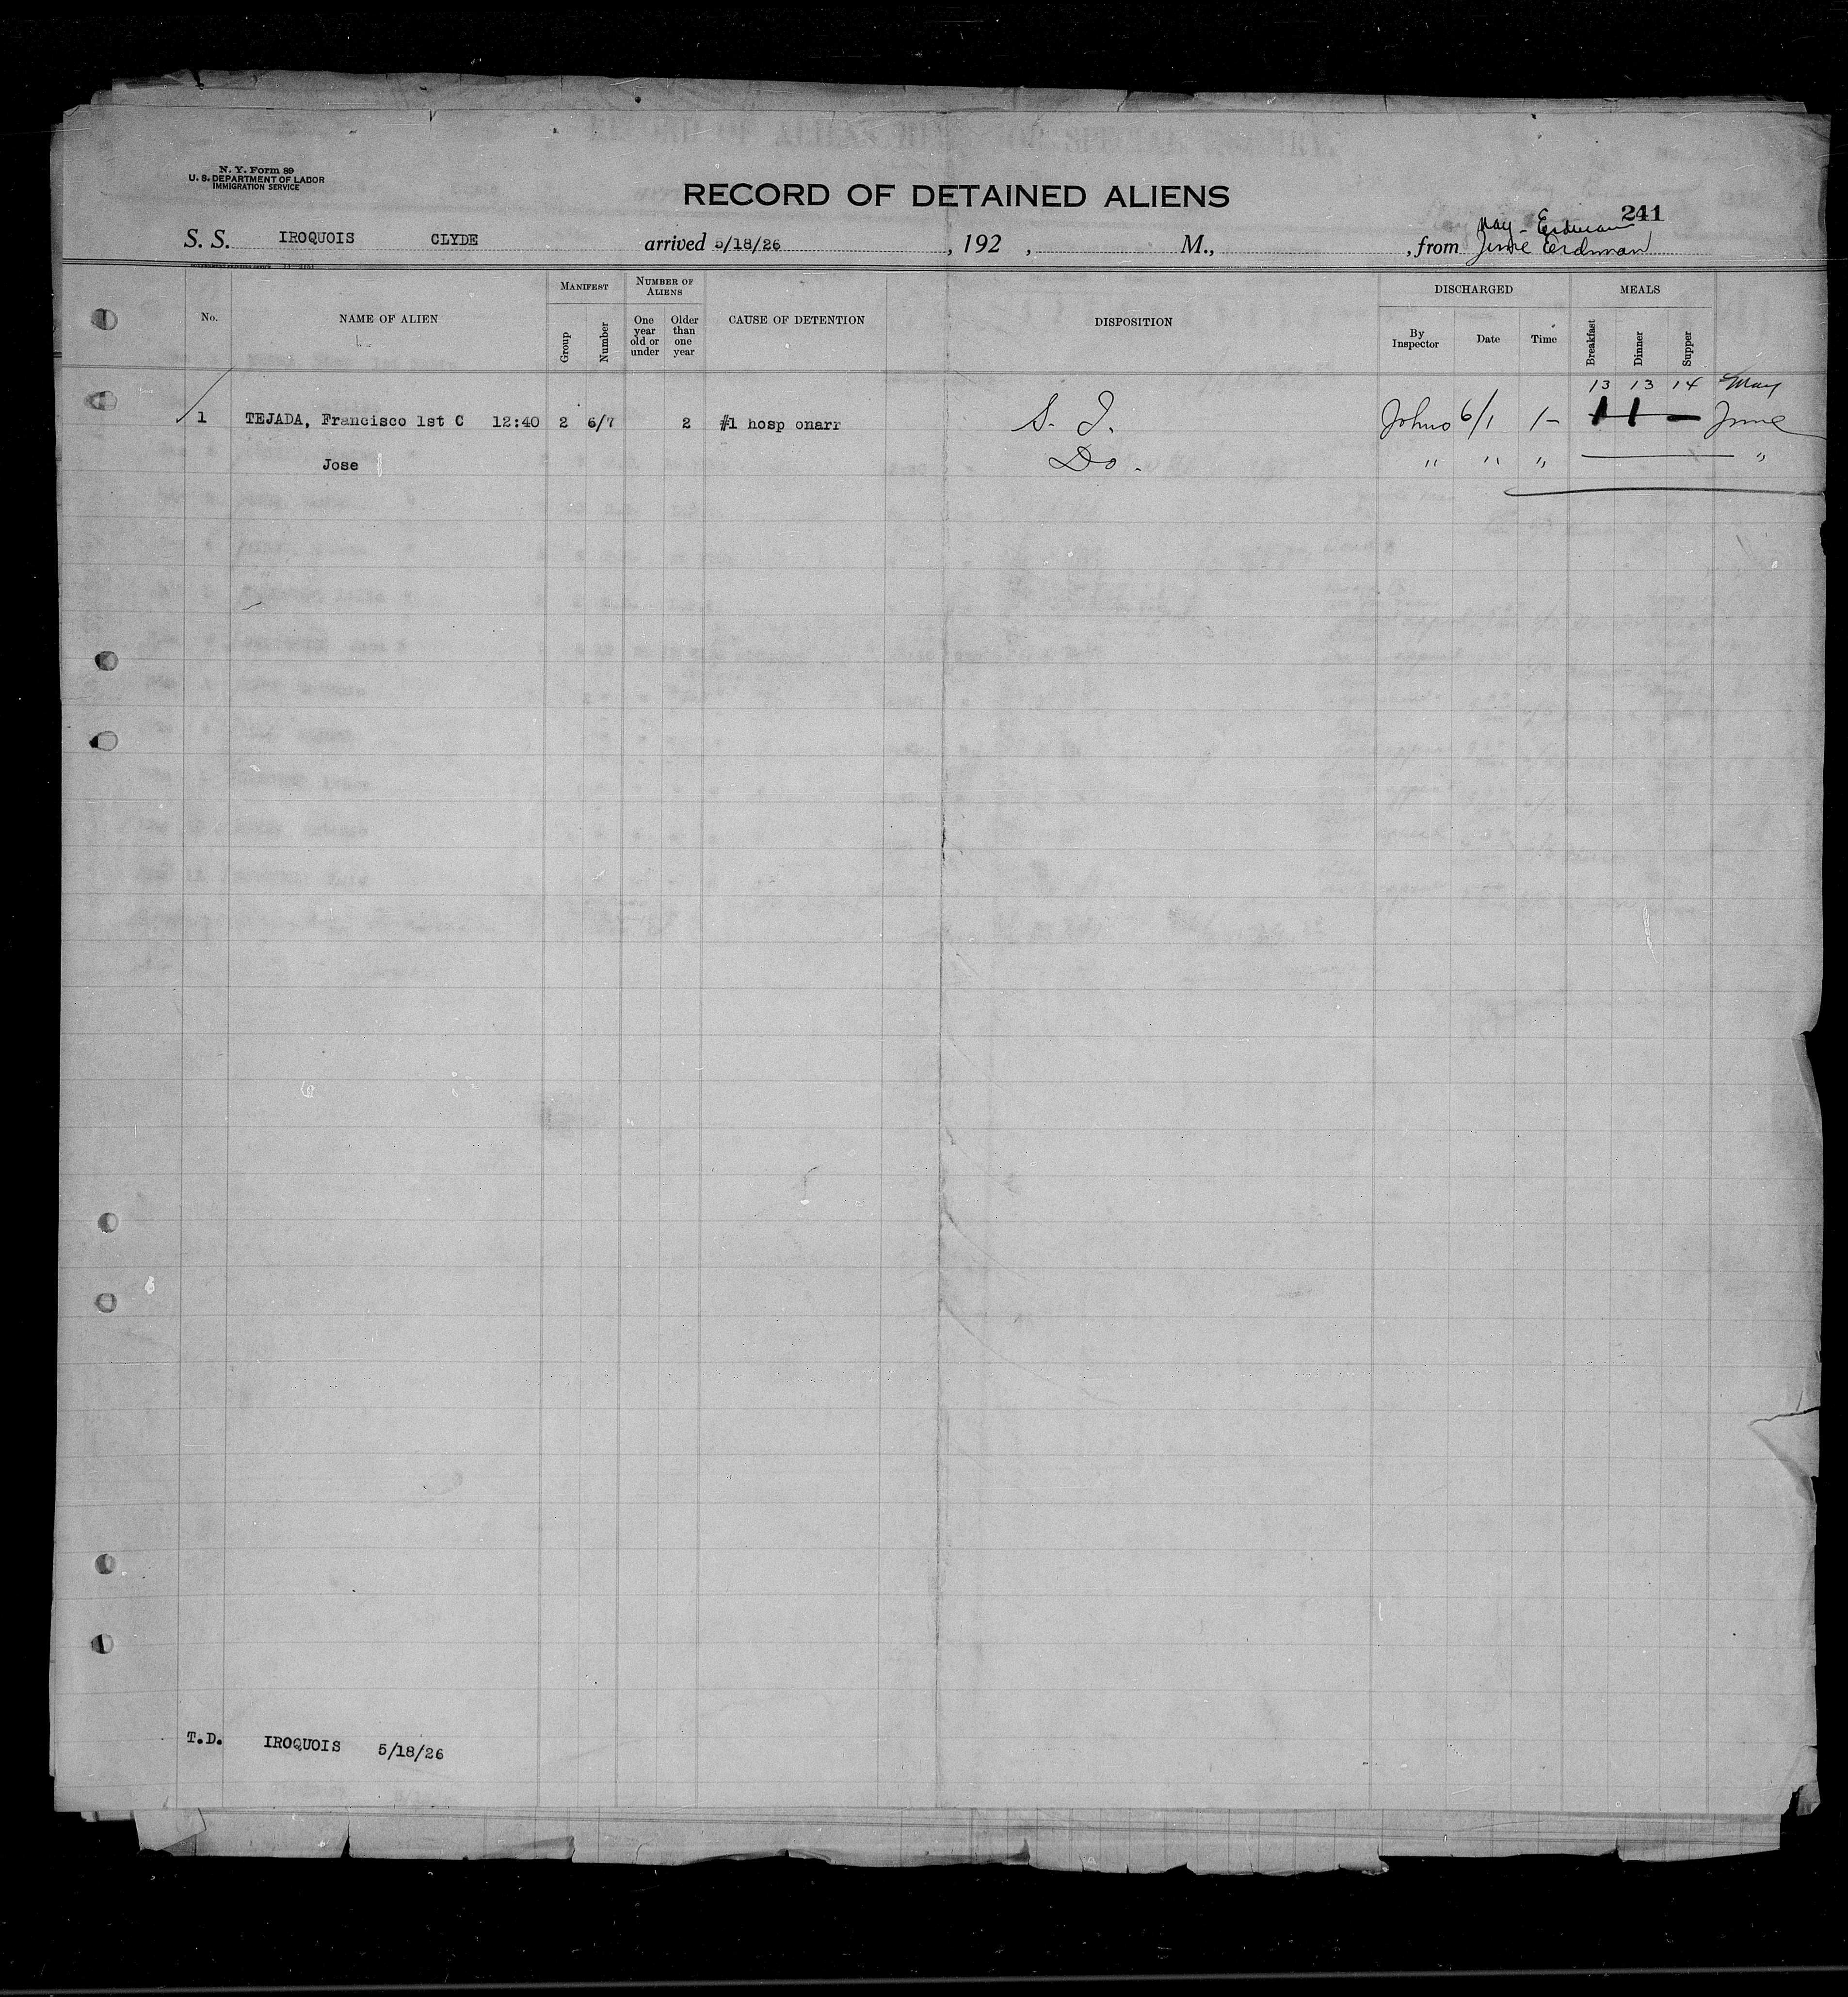 N. Y. Form 89
U. S. DEPARTMENT OF LABOR
IMMIGRATION SERVICE
RECORD OF DETAINED ALIENS
241
May - Erdman
S. S. IROQUOIS CLYDE arrived 5/18/26, 192 , M., , from June Erdman
No. NAME OF ALIEN MANIFEST NUMBER OF ALIENS CAUSE OF DETENTION DISPOSITION DISCHARGED MEALS
Group Number One year old or under Older than one year By Inspector Date Time Breakfast Dinner Supper
13 13 14 May
1 TEJADA, Francisco 1st C 12:40 2 6/7 2 #1 hosp onarr S. I. Johns 6/1 1- 1 1 - June
Jose Do. " " " "
T.D. IROQUOIS 5/18/26